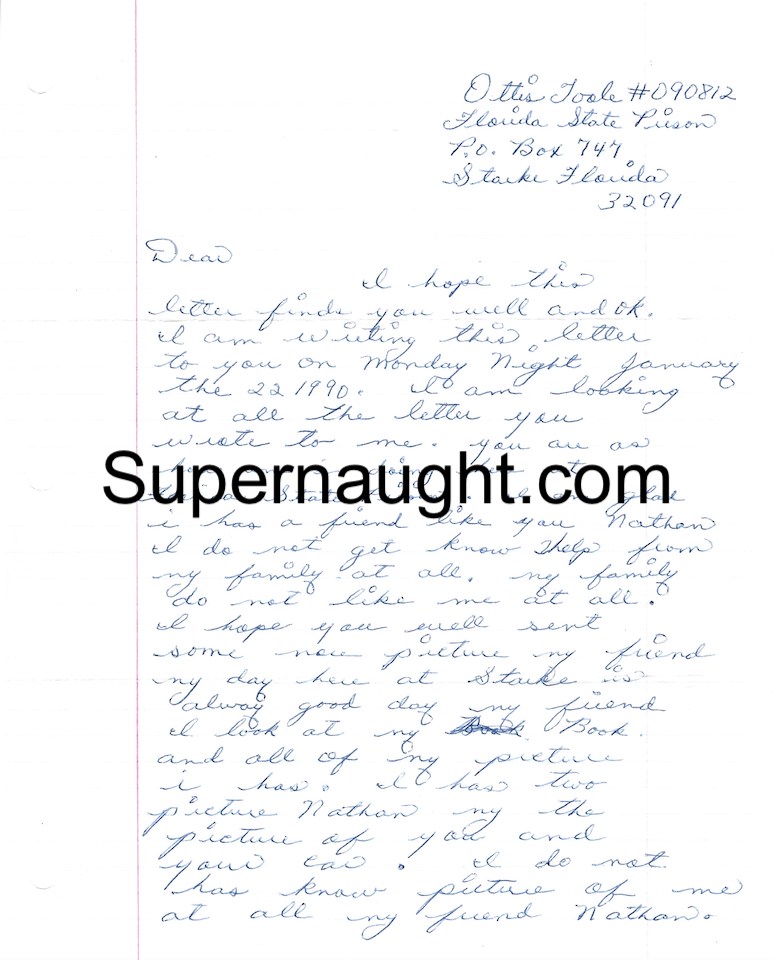 Ottis Toole #090812
Florida State Prison
P.O. Box 747
Starke Florida
32091
Dear
I hope this
letter finds you well and ok.
I am writing this letter
to you on Monday Night January
the 22 1990. I am looking
at all the letter you
wrote to me. you are as
Supernaught.com
i has a friend like you Nathan
I do not get know help from
my family at all. my family
do not like me at all.
I hope you well sent
some new picture my friend
my day here at Starke is
alway good day my friend
I look at my Book.
and all of my picture
i has. I has two
picture Nathan my the
picture of you and
your car. I do not
has know picture of me
at all my friend Nathan.